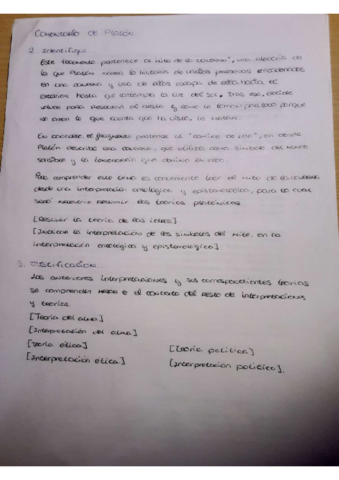 COMENTARIO DE PLATÓN
2. Identifique
Este fragmento pertenece al mito de la caverna", una alegoría en
la que Platón narra la historia de unos prisioneros encadenados
en una caverna y uno de ellos escapa de ella hasta el
exterior hasta que contempla la luz del sol. Tras eso, decide
volver para
que ha visto, lo matan.
En concreto el fragmento pertenece al
Platón describe una caverna, que utiliza como símbolo del mundo
sensible y la
Para comprender este texto es conveniente leer el mito de la caverna
desde una interpretación ontológica y epistemológica, para lo cual
será necesario resumir las teorías platónicas
[Resumir la teoría de las ideas]
[Indicar la interpretación de los símbolos del mito, en la
interpretación ontológica y epistemológica]
3. Justificación.
Las anteriores interpretaciones y sus correspondientes teorías
se comprenden el contexto del resto de interpretaciones
y teorías
[Teoría del alma]
[Interpretación del alma]
[teoría ética]
[Interpretación ética]
[teoría política]
[Interpretación política].